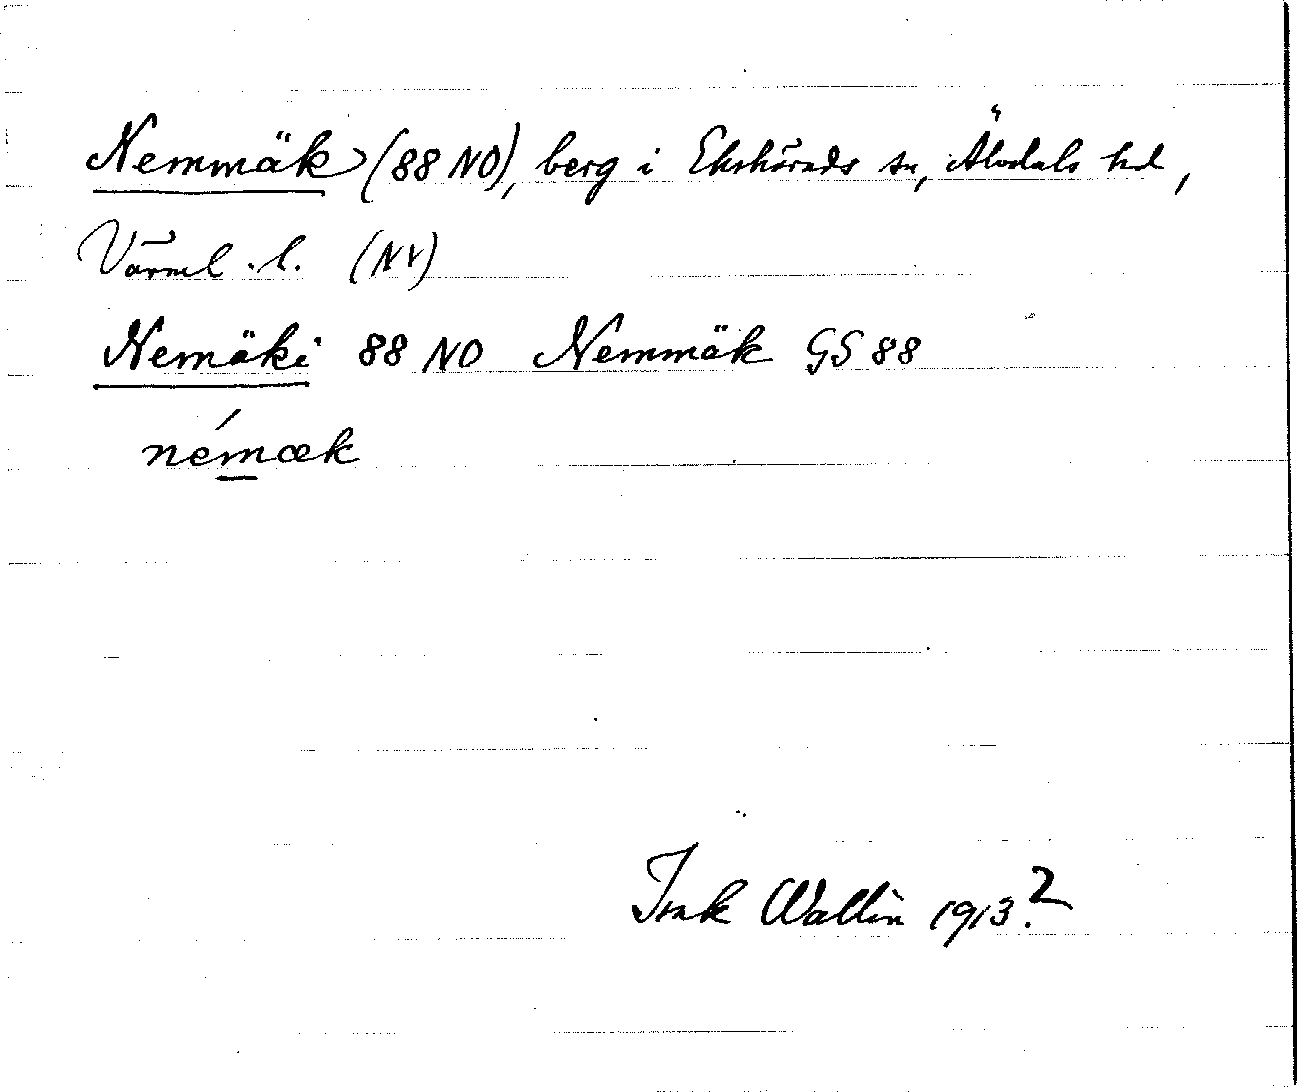 Nemmäk (88 NO), berg i Ekshärads sn, Älvdals hd,
Värml. l. (NV)
Nemäki 88 NO Nemmäk GS 88
némæk
Isak Wallin 1913?